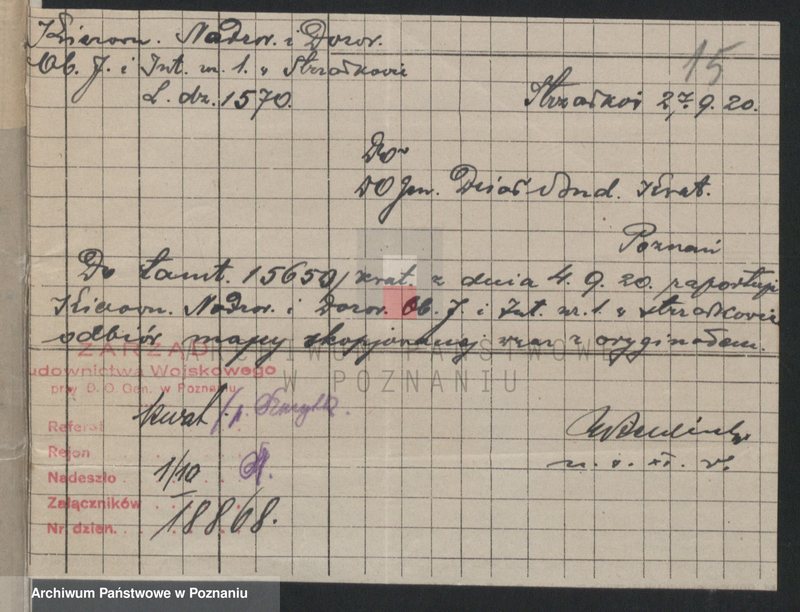 Kierown. Nadzor. i Dozor.
Ob. J. i Int. nr. 1. w Strzałkowie
L. dz. 1570.
15
Strzałków 27.9.20.
Do
DOGen. Dział Bud. Kwat.
Poznań
Do tamt. 15650/kwat. z dnia 4.9.20. raportuje
Kierown. Nadzor. i Dozor. Ob. J. i Int. nr. 1. w Strzałkowie
odbiór mapy skopjowanej wraz z oryginałem.
ARCHIWUM PAŃSTWOWE
W POZNANIU
ZARZĄD
Budownictwa Wojskowego
przy D. O. Gen. w Poznaniu
Referat kwat. /p.
Rejon
Nadeszło 1/10
Załączników
Nr. dzien. 18868.
Archiwum Państwowe w Poznaniu